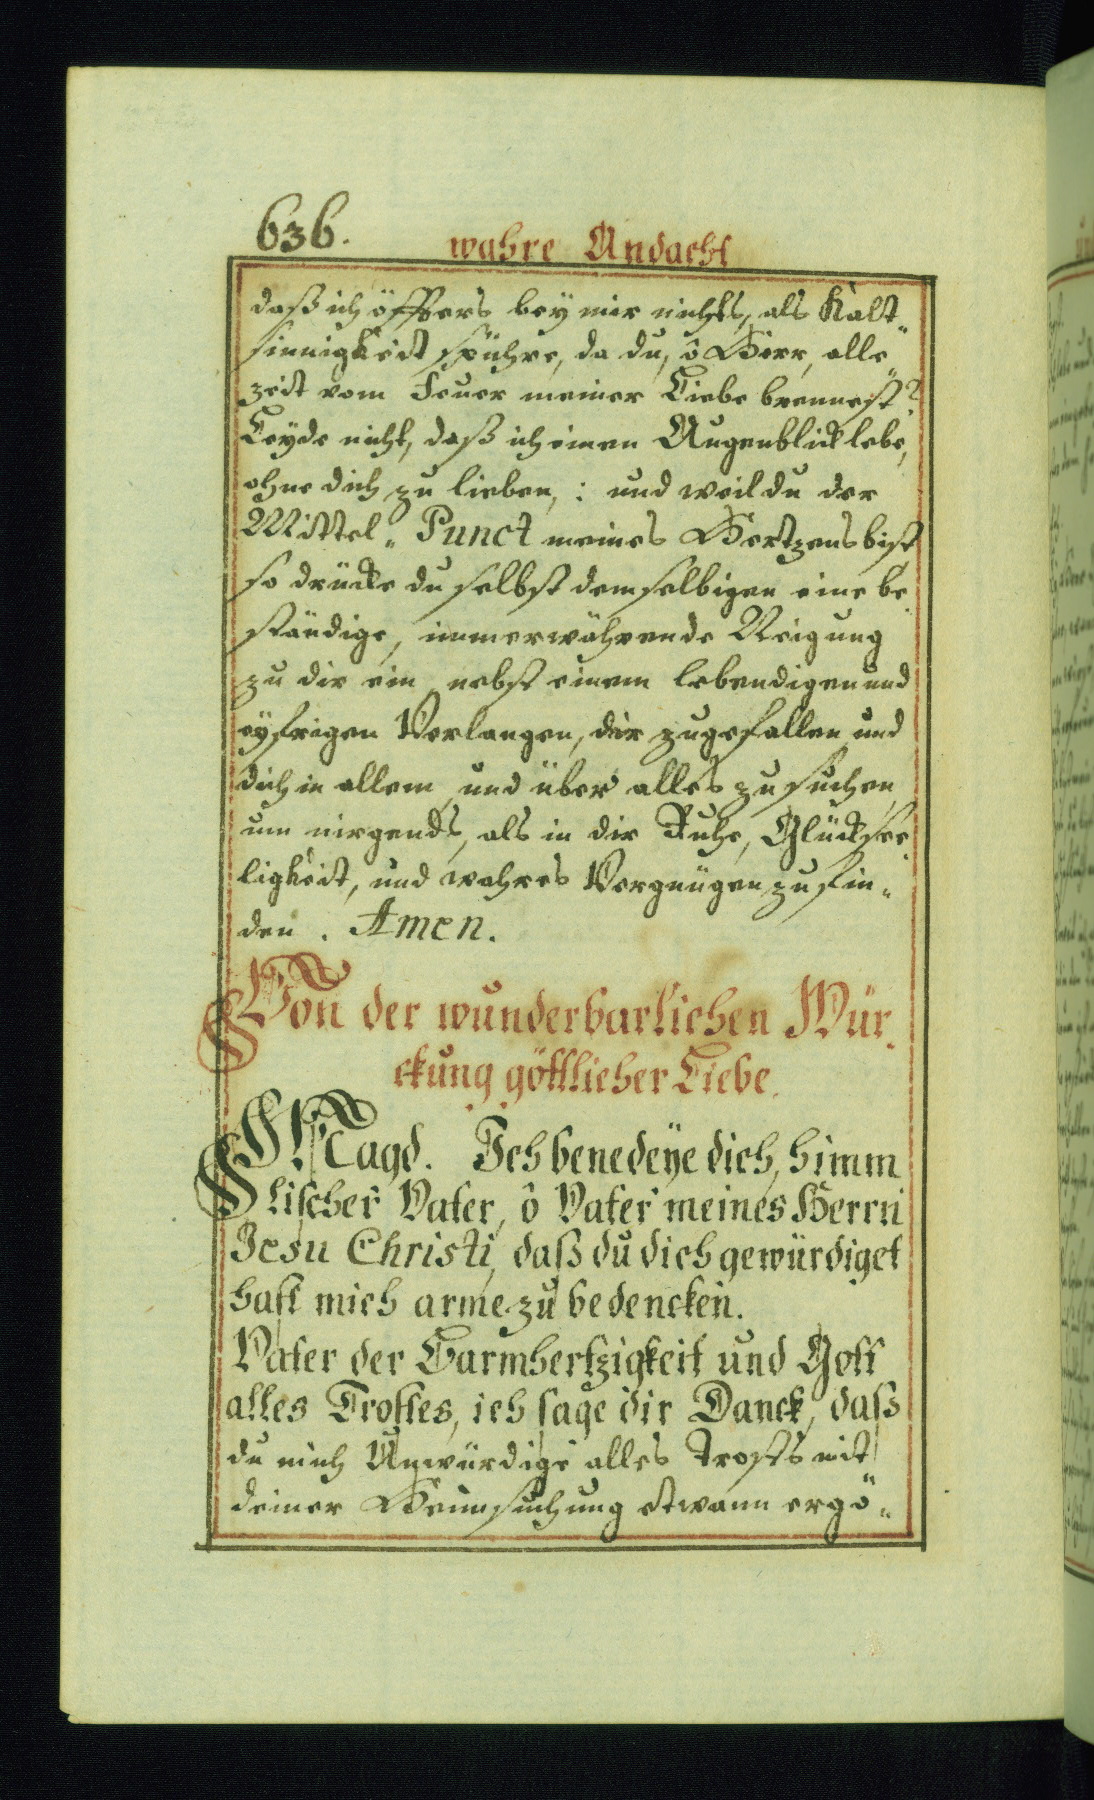 636.
wahre Andacht
daß ich öffters bey mir nichts, als Kalt„
sinnigkeit spühre, da du, ô Herr, alle„
zeit vom Feuer meiner Liebe brennest?
Leyde nicht, daß ich einen Augenblick lebe,
ohne dich zu lieben,: und weil du der
Mittel„ Punct meines Hertzens bist
so drücke du selbst demselbigen eine be„
ständige, immerwährende Neigung
zu dir ein, nebst einem lebendigen und
eyfrigen Verlangen, dir zugefallen, und
dich in allem, und über alles zu suchen,
um nirgends, als in dir Ruhe, Glücksee„
ligkeit, und wahres Vergnügen zu fin„
den. Amen.
Von der wunderbarlichen Wür„
ckung göttlicher Liebe.
Magd. Ich benedeÿe dich, himm
lischer Vater, ô Vater meines Herrn
Jesu Christi, daß du dich gewürdiget
hast mich arme zu bedencken.
Vater der Barmhertzigkeit und Gott
alles Trostes, ich sage dir Danck, daß
du mich Unwürdige alles Trosts mit
deiner Heimsuchung etwann ergö„